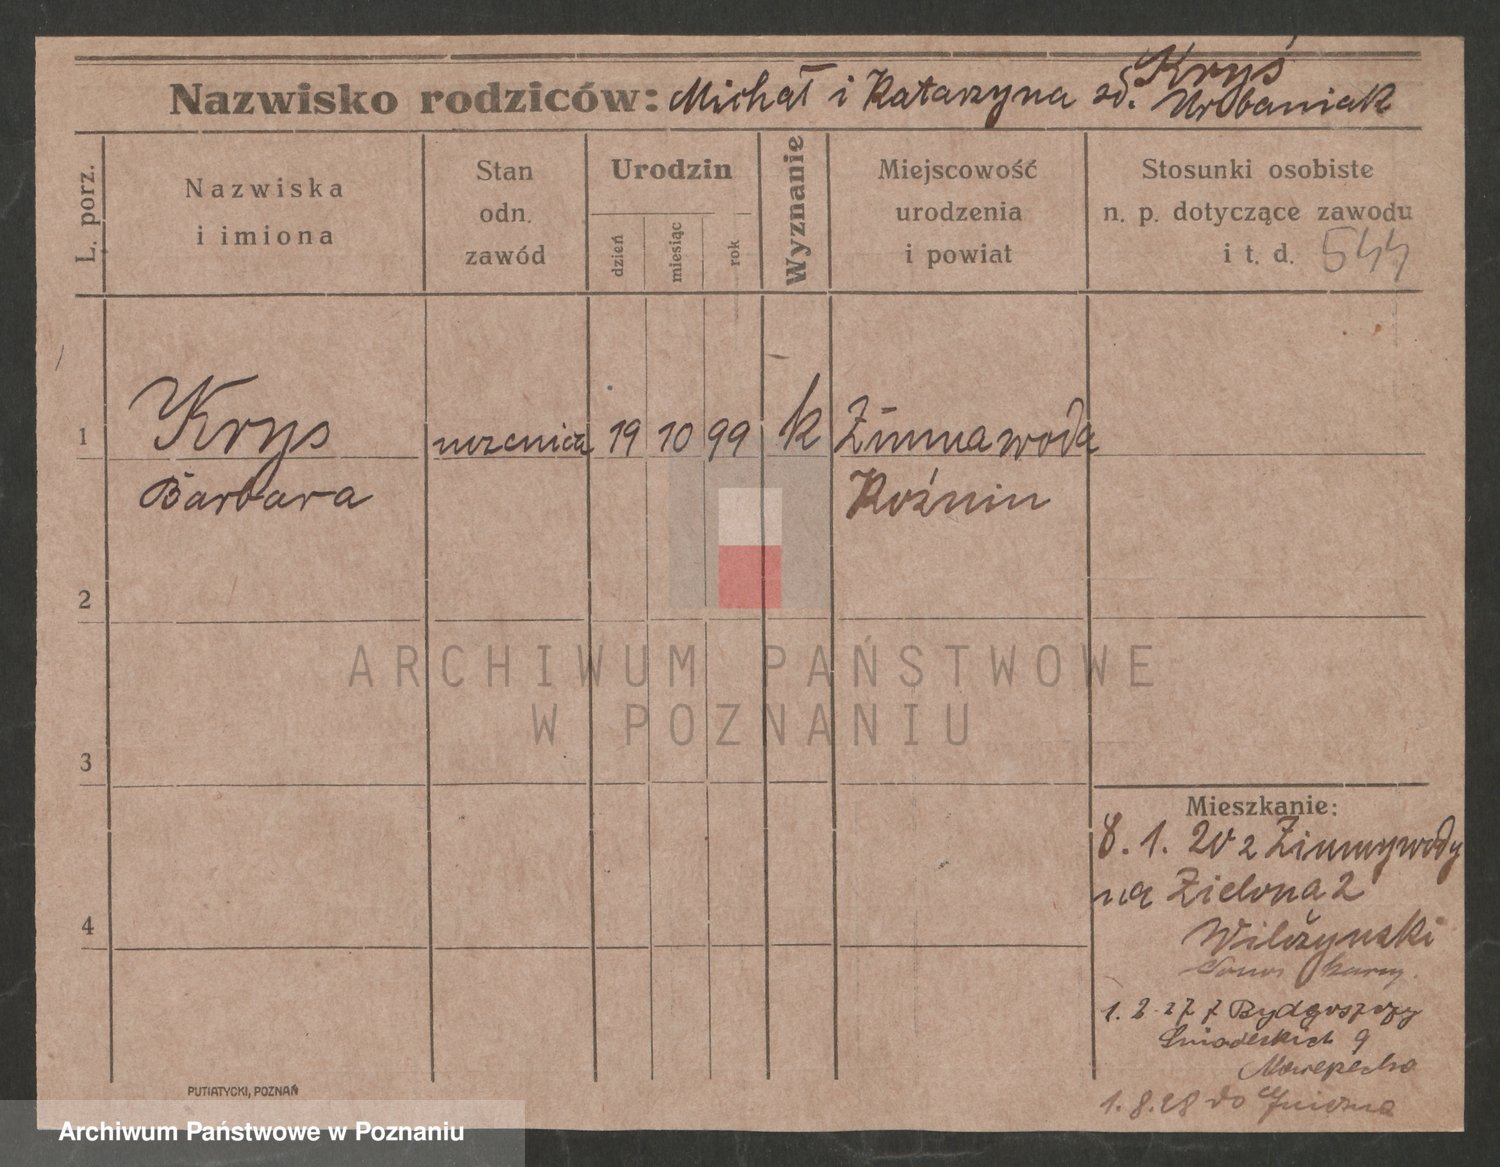 Nazwisko rodziców: Michał i Katarzyna zd. Kryś
Urbaniak
L. porz.
Nazwiska
i imiona
Stan
odn.
zawód
Urodzin
dzień
miesiąc
rok
Wyznanie
Miejscowość
urodzenia
i powiat
Stosunki osobiste
n. p. dotyczące zawodu
i t. d. 544
1 Krys uczenica 19 10 99 k Zimnawoda
Barbara Koźmin
2
ARCHIWUM PAŃSTWOWE
W POZNANIU
3
Mieszkanie:
8. 1. 20 z Zimnywody
na Zielona 2
4
1. 2. 27 z Bydgoszczy
Śniadeckich 9
1. 8. 28 do
PUTIATYCKI, POZNAŃ
Archiwum Państwowe w Poznaniu